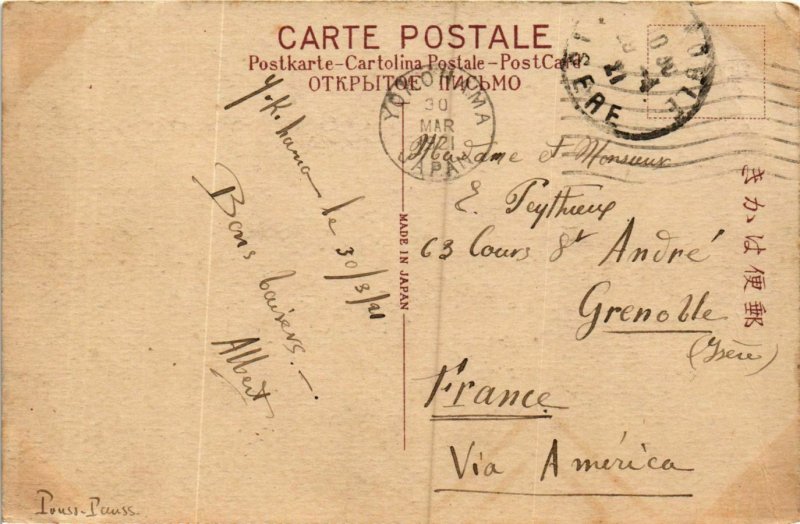 CARTE POSTALE
Postkarte-Cartolina Postale-PostCard
ОТКРЫТОЕ ПИСЬМО
YOKOHAMA
30
MAR
21
JAPAN
ISERE
Yokohama le 30/3/21
Bons baisers.-
Albert
MADE IN JAPAN
Madame et Monsieur
E. Peythieux
63 Cours St André
Grenoble
(Isère)
France
Via América
きかは便郵
Pouss-Pauss